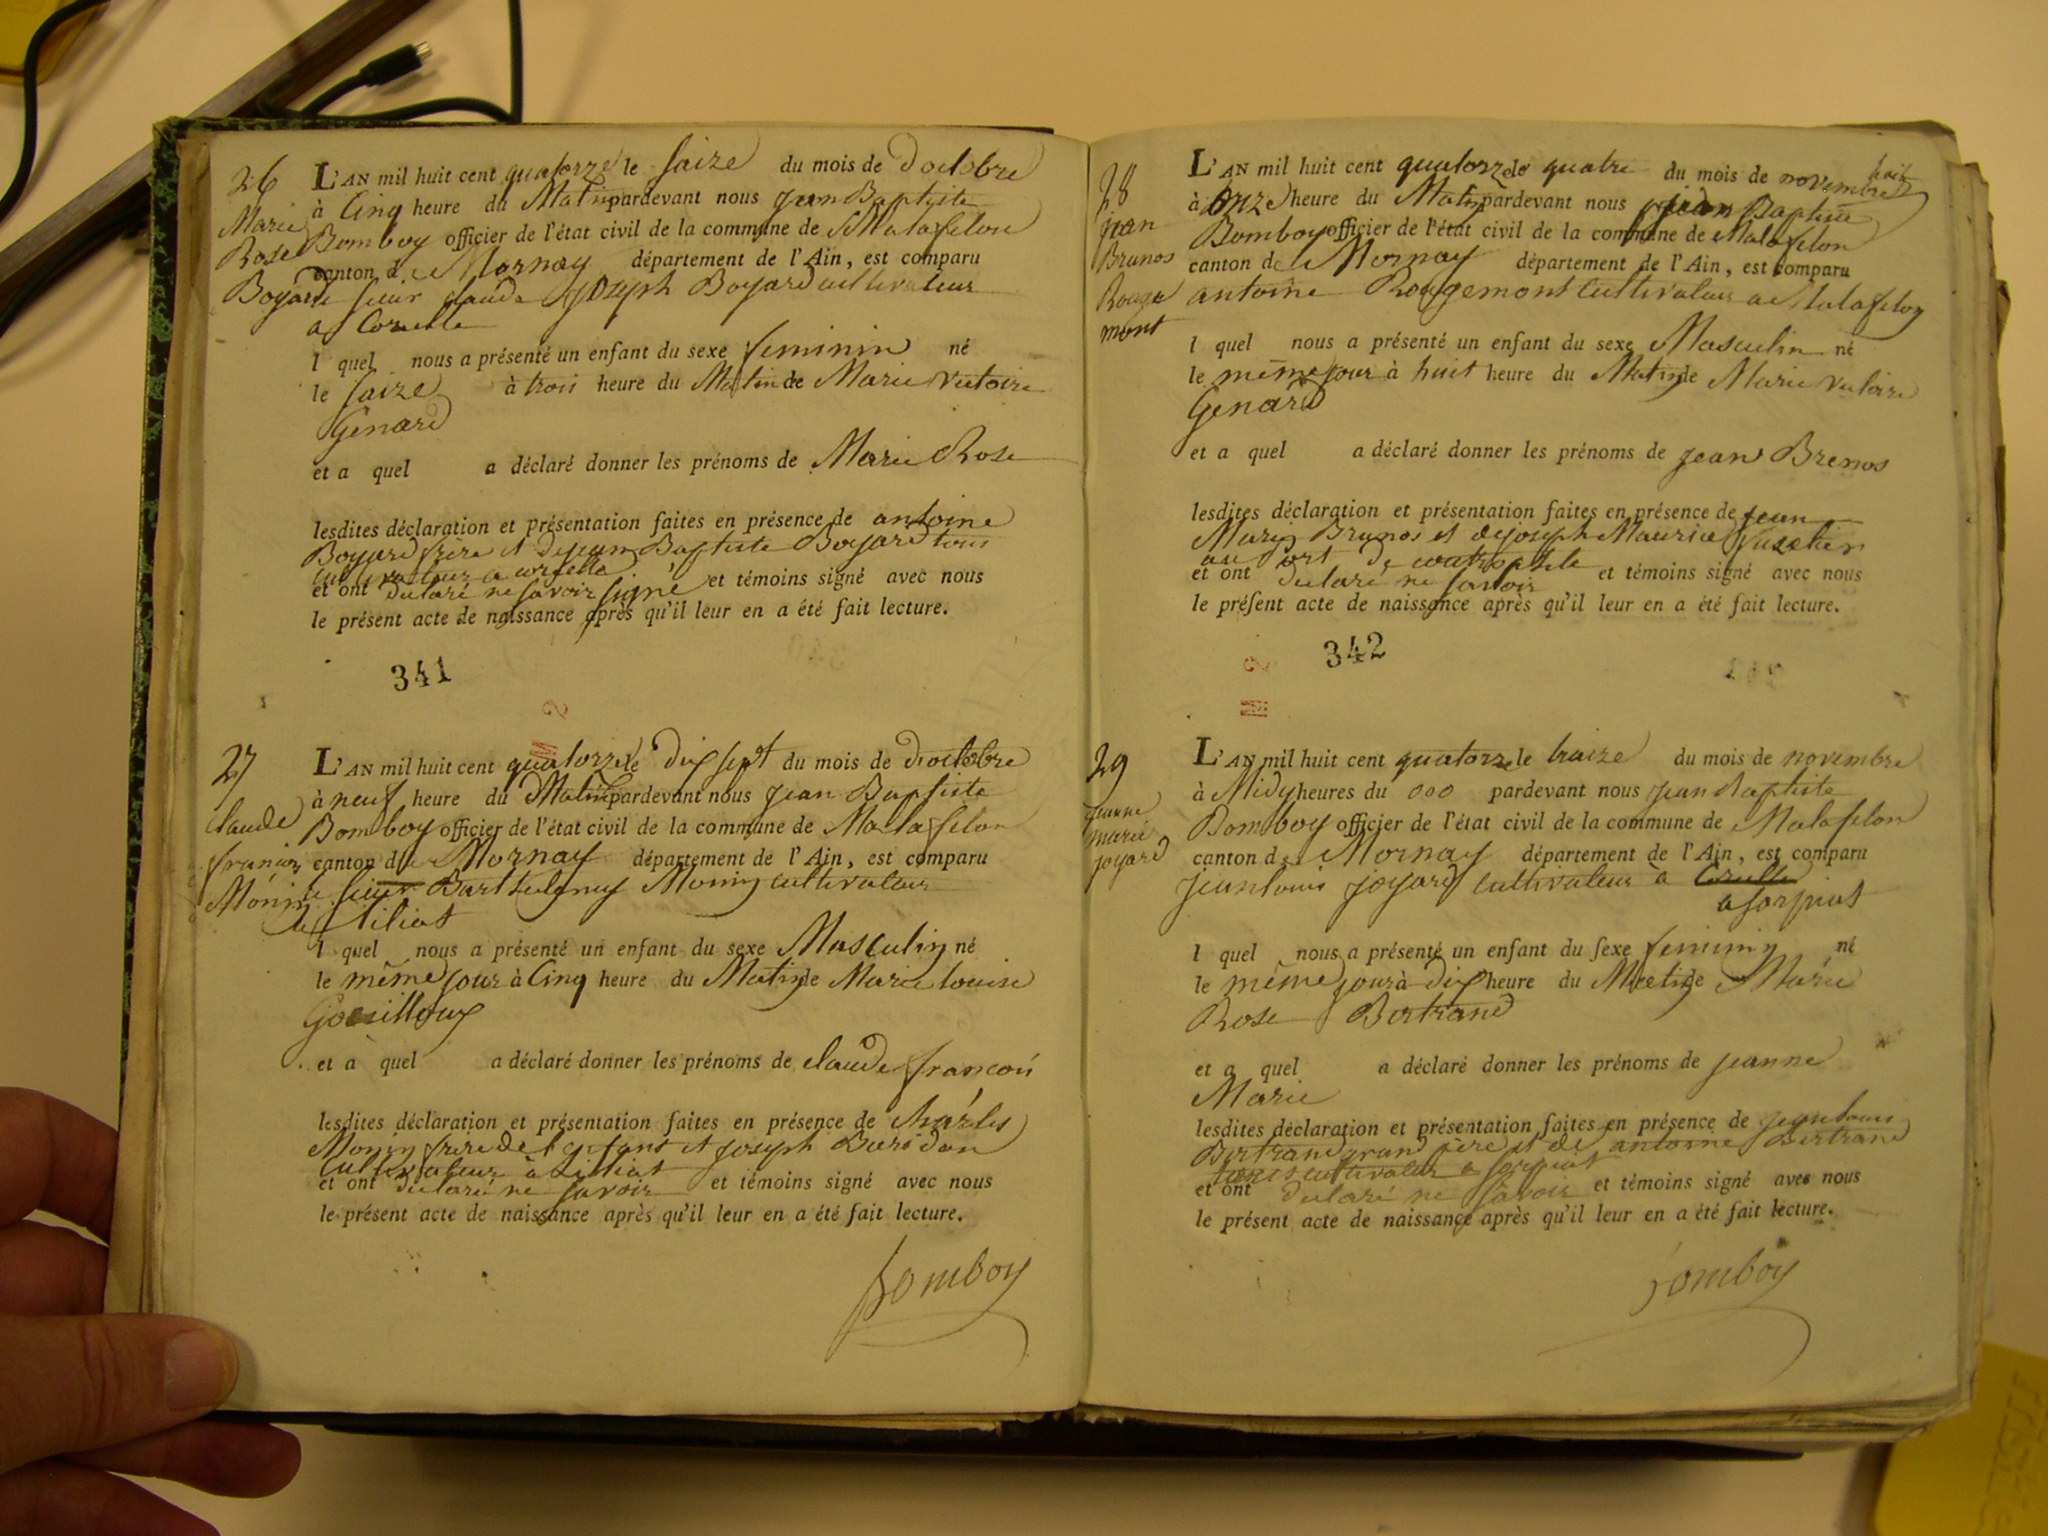 26
Marie
Rose
Boyard
L'AN mil huit cent quatorze le saize du mois de d'octobre
à Cinq heure du Matin pardevant nous jean Baptiste
Bomboy officier de l'état civil de la commune de Matafelon
canton de Mornay département de l'Ain, est comparu
le sieur claude joseph Boyard cultivateur
a Corcelle
l quel nous a présenté un enfant du sexe feminin né
le saize à trois heure du Matin de Marie victoire
Genard
et a quel a déclaré donner les prénoms de Marie Rose
lesdites déclaration et présentation faites en présence de antoine
Boyard frère et de jean Baptiste Boyard tous
cultivateur a corcelle
et ont declaré ne savoir signé et témoins signé avec nous
le présent acte de naissance après qu'il leur en a été fait lecture.
341
M 2
27
Claude
françois
Monin
L'AN mil huit cent quatorze le dix sept du mois de d'octobre
à neuf heure du Matin pardevant nous jean Baptiste
Bomboy officier de l'état civil de la commune de Matafelon
canton de Mornay département de l'Ain, est comparu
le sieur Barthelemy Monin cultivateur
a liliat
l quel nous a présenté un enfant du sexe Masculin né
le même jour à Cinq heure du Matin de Marie louise
et à quel a déclaré donner les prénoms de claude françois
lesdites déclaration et présentation faites en présence de Charles
Monin frère de l'enfant et joseph Buridon
cultivateur à Liliat
et ont declaré ne savoir et témoins signé avec nous
le présent acte de naissance après qu'il leur en a été fait lecture.
Bomboy
28
jean
Brunos
Rouge
mont
L'AN mil huit cent quatorze le quatre du mois de novembre
à onze heure du Matin pardevant nous jean Baptiste
Bomboy officier de l'état civil de la commune de Matafelon
canton de Mornay département de l'Ain, est comparu
antoine Rougemont cultivateur a Matafelon
l quel nous a présenté un enfant du sexe Masculin né
le même jour à huit heure du Matin de Marie victoire
Genard
et a quel a déclaré donner les prénoms de jean Brenos
lesdites déclaration et présentation faites en présence de jean
Marie Brunos et de joseph Maurice
au port de
et ont declaré ne savoir et témoins signé avec nous
le présent acte de naissance après qu'il leur en a été fait lecture.
342
M 2
29
jeanne
marie
joyard
L'AN mil huit cent quatorze le traize du mois de novembre
à Midy heures du 000 pardevant nous jean Baptiste
Bomboy officier de l'état civil de la commune de Matafelon
canton de Mornay département de l'Ain, est comparu
jean louis joyard cultivateur a Corcelle
a sorpiat
l quel nous a présenté un enfant du sexe feminin né
le même jour à dix heure du Matin de Marie
Rose Bertrand
et a quel a déclaré donner les prénoms de jeanne
Marie
lesdites déclaration et présentation faites en présence de jean louis
Bertrand grand père et de antoine Bertrand
tous cultivateur a sorpiat
et ont declaré ne savoir et témoins signé avec nous
le présent acte de naissance après qu'il leur en a été fait lecture.
Bomboy